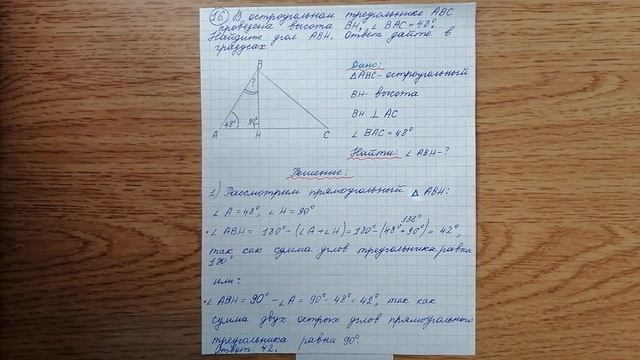 16 В остроугольном треугольнике ABC
проведена высота BH, ∠ BAC = 42°
Найдите угол ABH. Ответ дайте в
градусах
Дано:
△ABC - остроугольный
BH - высота
BH ⊥ AC
∠ BAC = 48°
Найти: ∠ ABH - ?
B
?
48°
90°
A
H
C
Решение:
1) Рассмотрим прямоугольный △ ABH:
∠ A = 48°, ∠ H = 90°
138°
• ∠ ABH = 180° - (∠A + ∠H) = 180° - (48° + 90°) = 42°,
так как сумма углов треугольника равна
180°
или:
• ∠ ABH = 90° - ∠A = 90° - 48° = 42°, так как
сумма двух острых углов прямоугольного
треугольника равна 90°.
Ответ: 42.